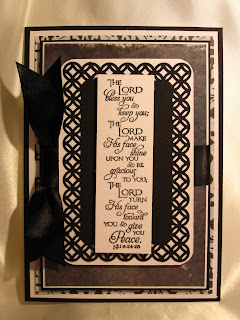 The
Lord
bless you
& keep you;
The
Lord
make
His face
shine
upon you
& be
gracious
to you;
The
Lord
turn
His face
toward
you & give
you
Peace.
NU 6:24-26